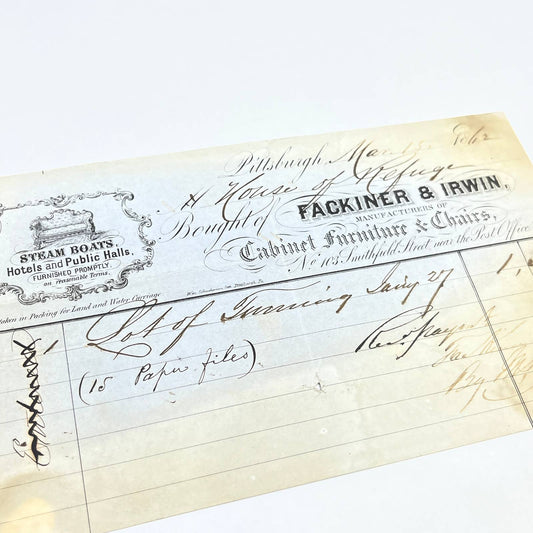 Pittsburgh Mar 15 1862
House of Refuge
Bought of FACKINER & IRWIN,
MANUFACTURERS OF
Cabinet Furniture & Chairs,
No 104 Smithfield Street near the Post Office
STEAM BOATS,
Hotels and Public Halls,
FURNISHED PROMPTLY
on reasonable Terms.
taken in Packing for Land and Water Carriage
Lot of Turning Jany 27
(15 Paper files)